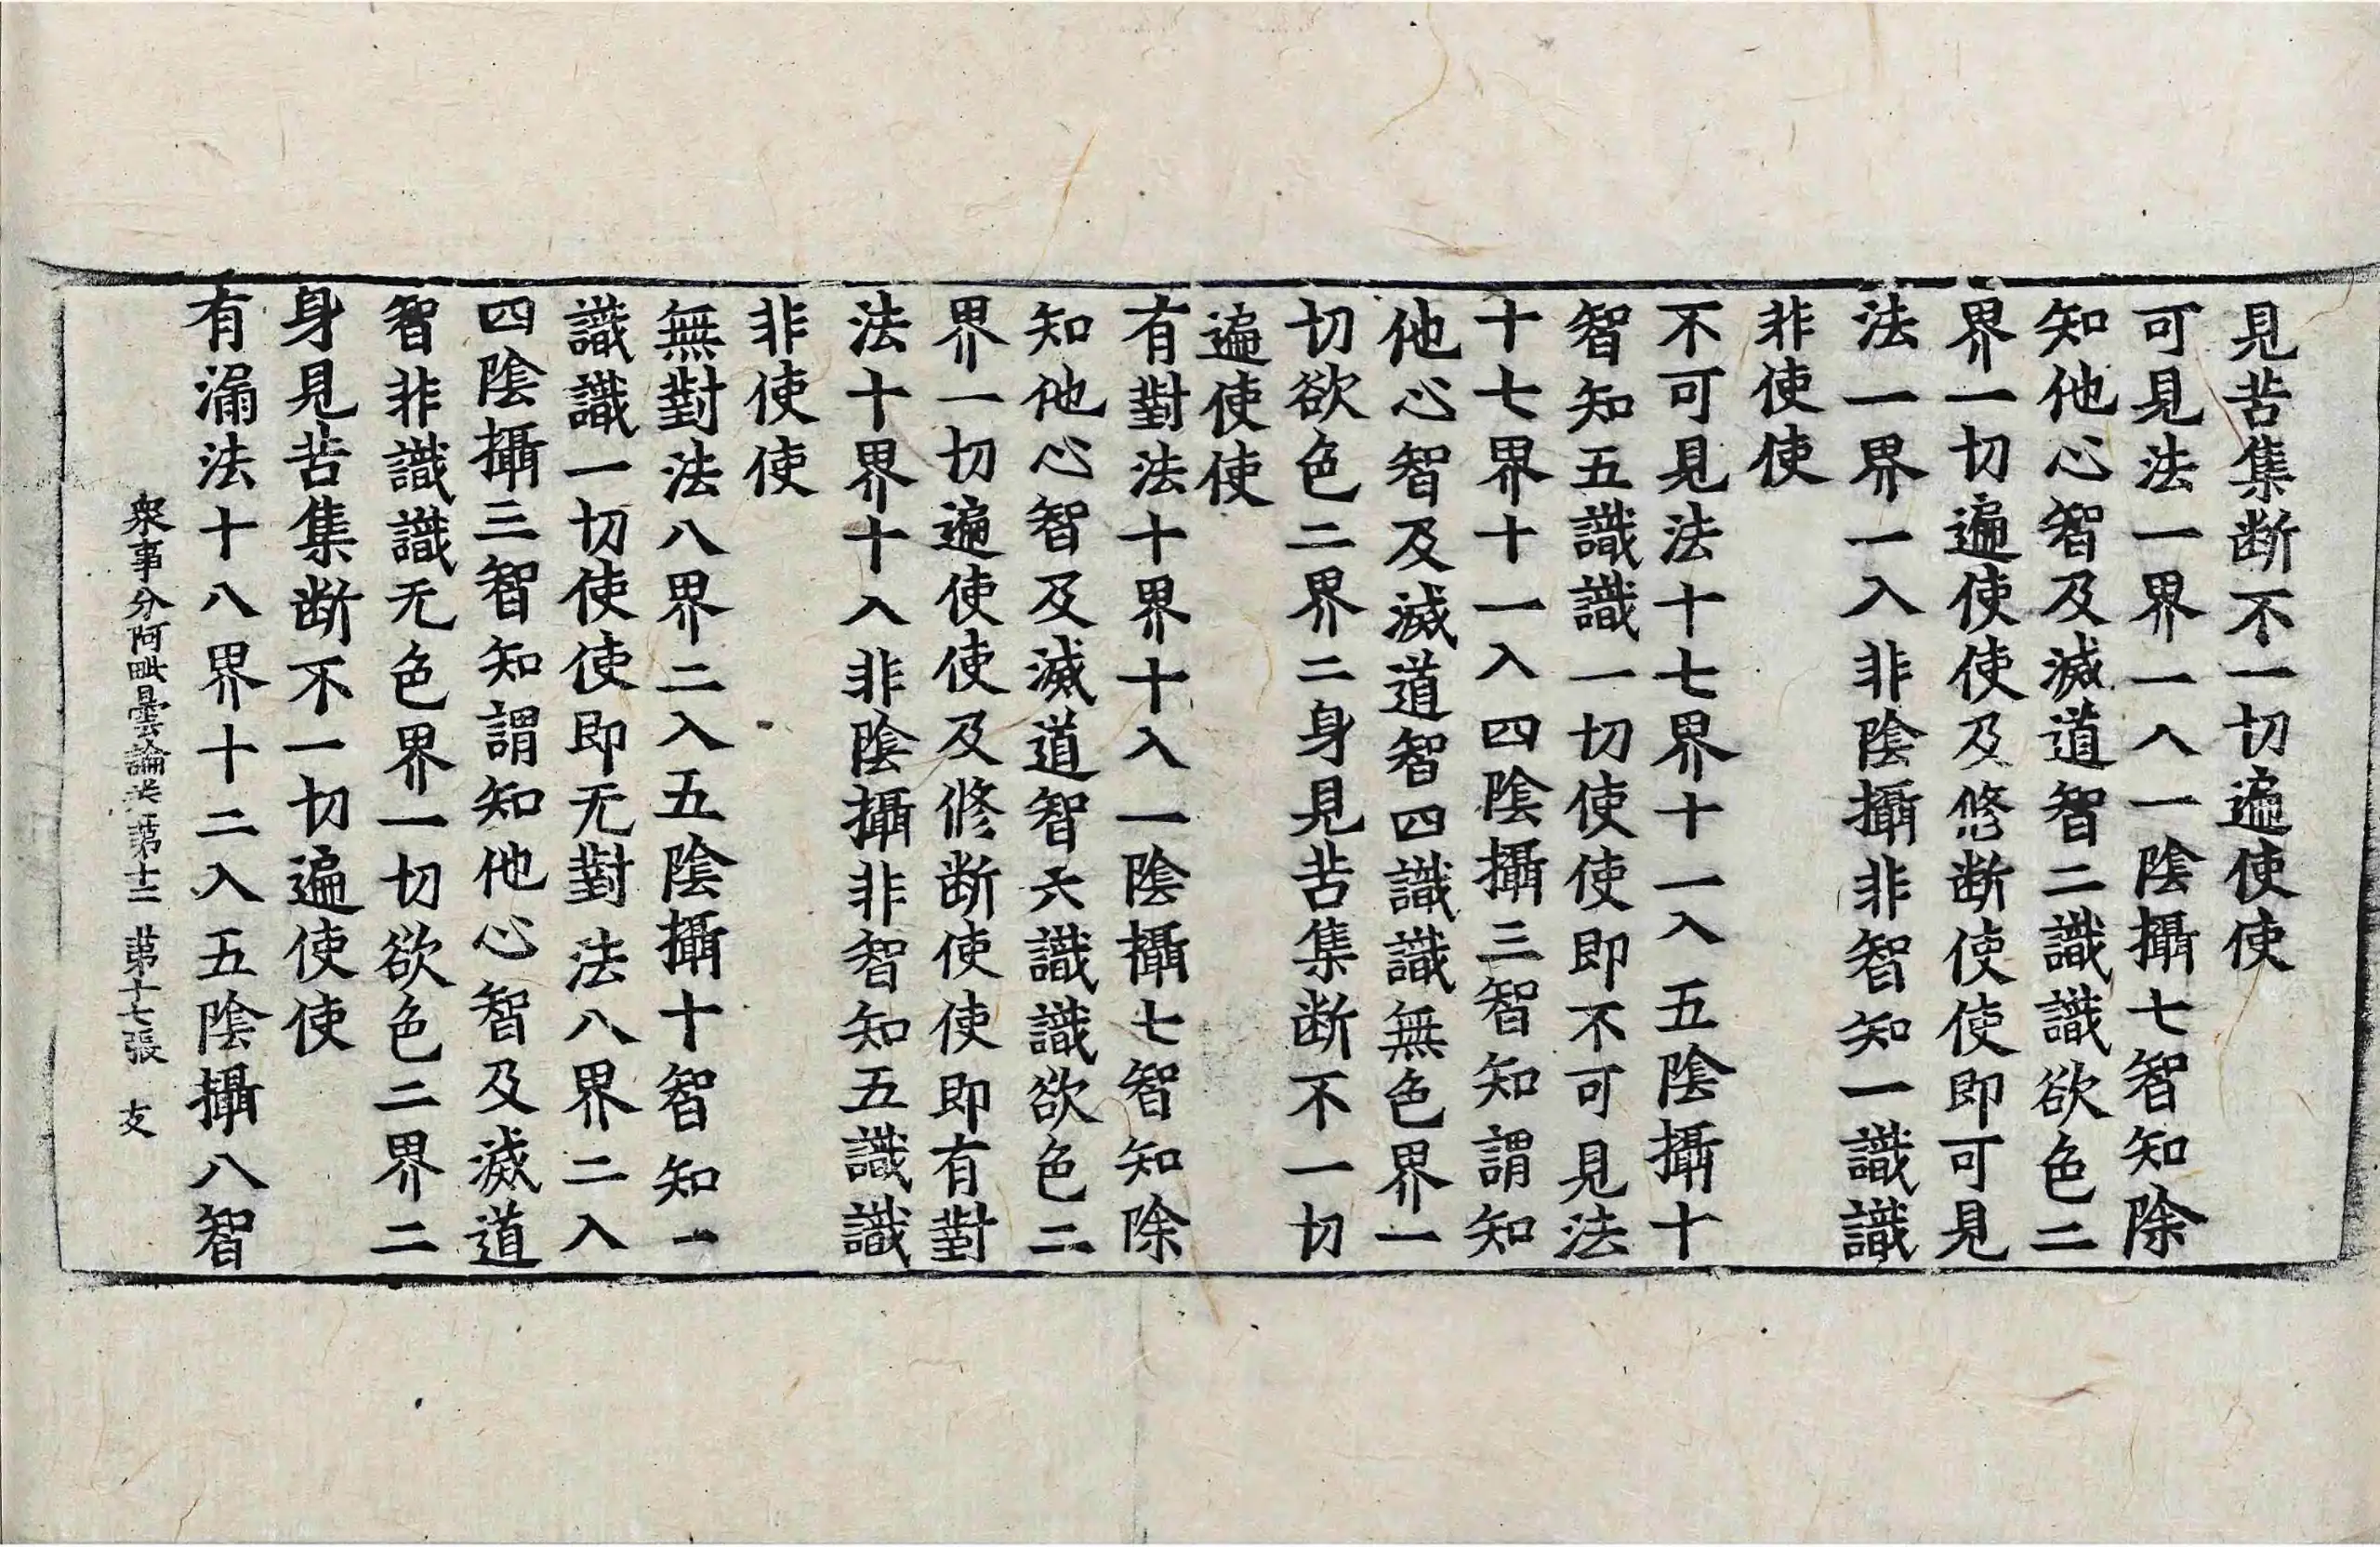 見苦集断不一切遍使使
可見法一界一入一陰攝七智知除
知他心智及滅道智二識識欲色二
界一切遍使使及修断使使即可見
法一界一入非陰攝非智知一識識
非使使
不可見法十七界十一入五陰攝十
智知五識識一切使使即不可見法
十七界十一入四陰攝三智知謂知
他心智及滅道智四識識無色界一
切欲色二界二身見苦集断不一切
遍使使
有對法十界十入一陰攝七智知除
知他心智及滅道智六識識欲色二
界一切遍使使及修断使使即有對
法十界十入非陰攝非智知五識識
非使使
無對法八界二入五陰攝十智知一
識識一切使使即无對法八界二入
四陰攝三智知謂知他心智及滅道
智非識識无色界一切欲色二界二
身見苦集断不一切遍使使
有漏法十八界十二入五陰攝八智
衆事分阿毗曇論卷第十二 第十七張 支